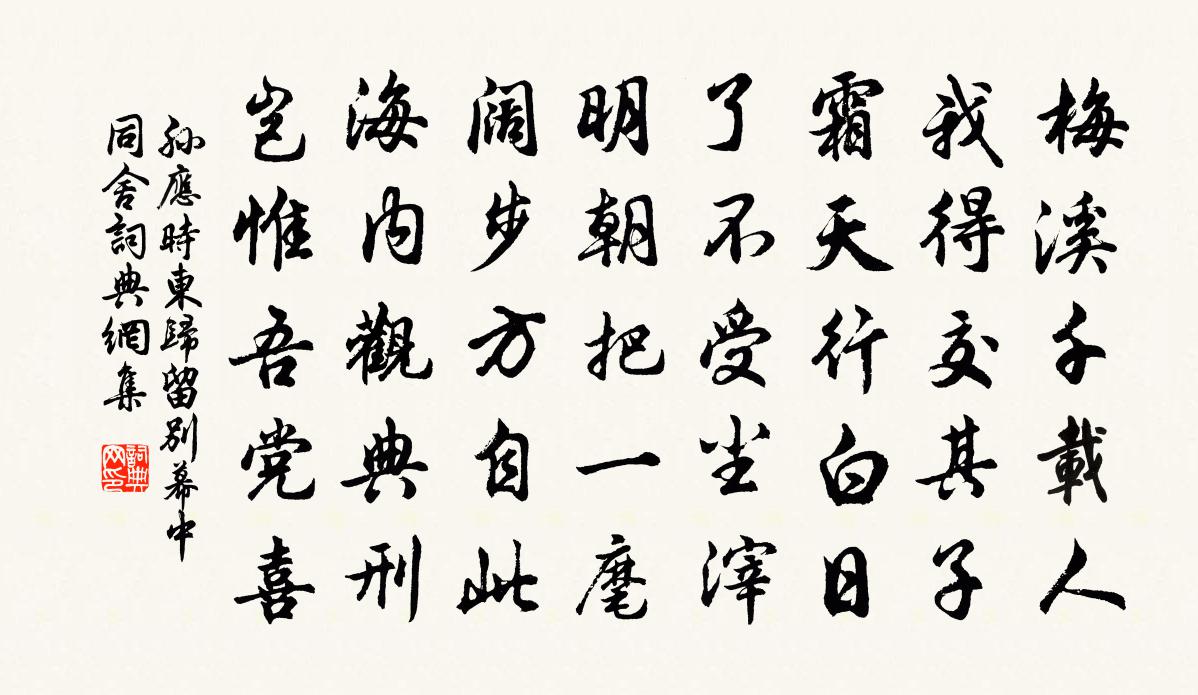 梅溪千載人
我得交其子
霜天行白日
了不受尘滓
明朝把一麾
阔步方自此
海内觀典刑
岂惟吾党喜
孙應時東歸留别幕中
同舍詞典網集
詞典网印